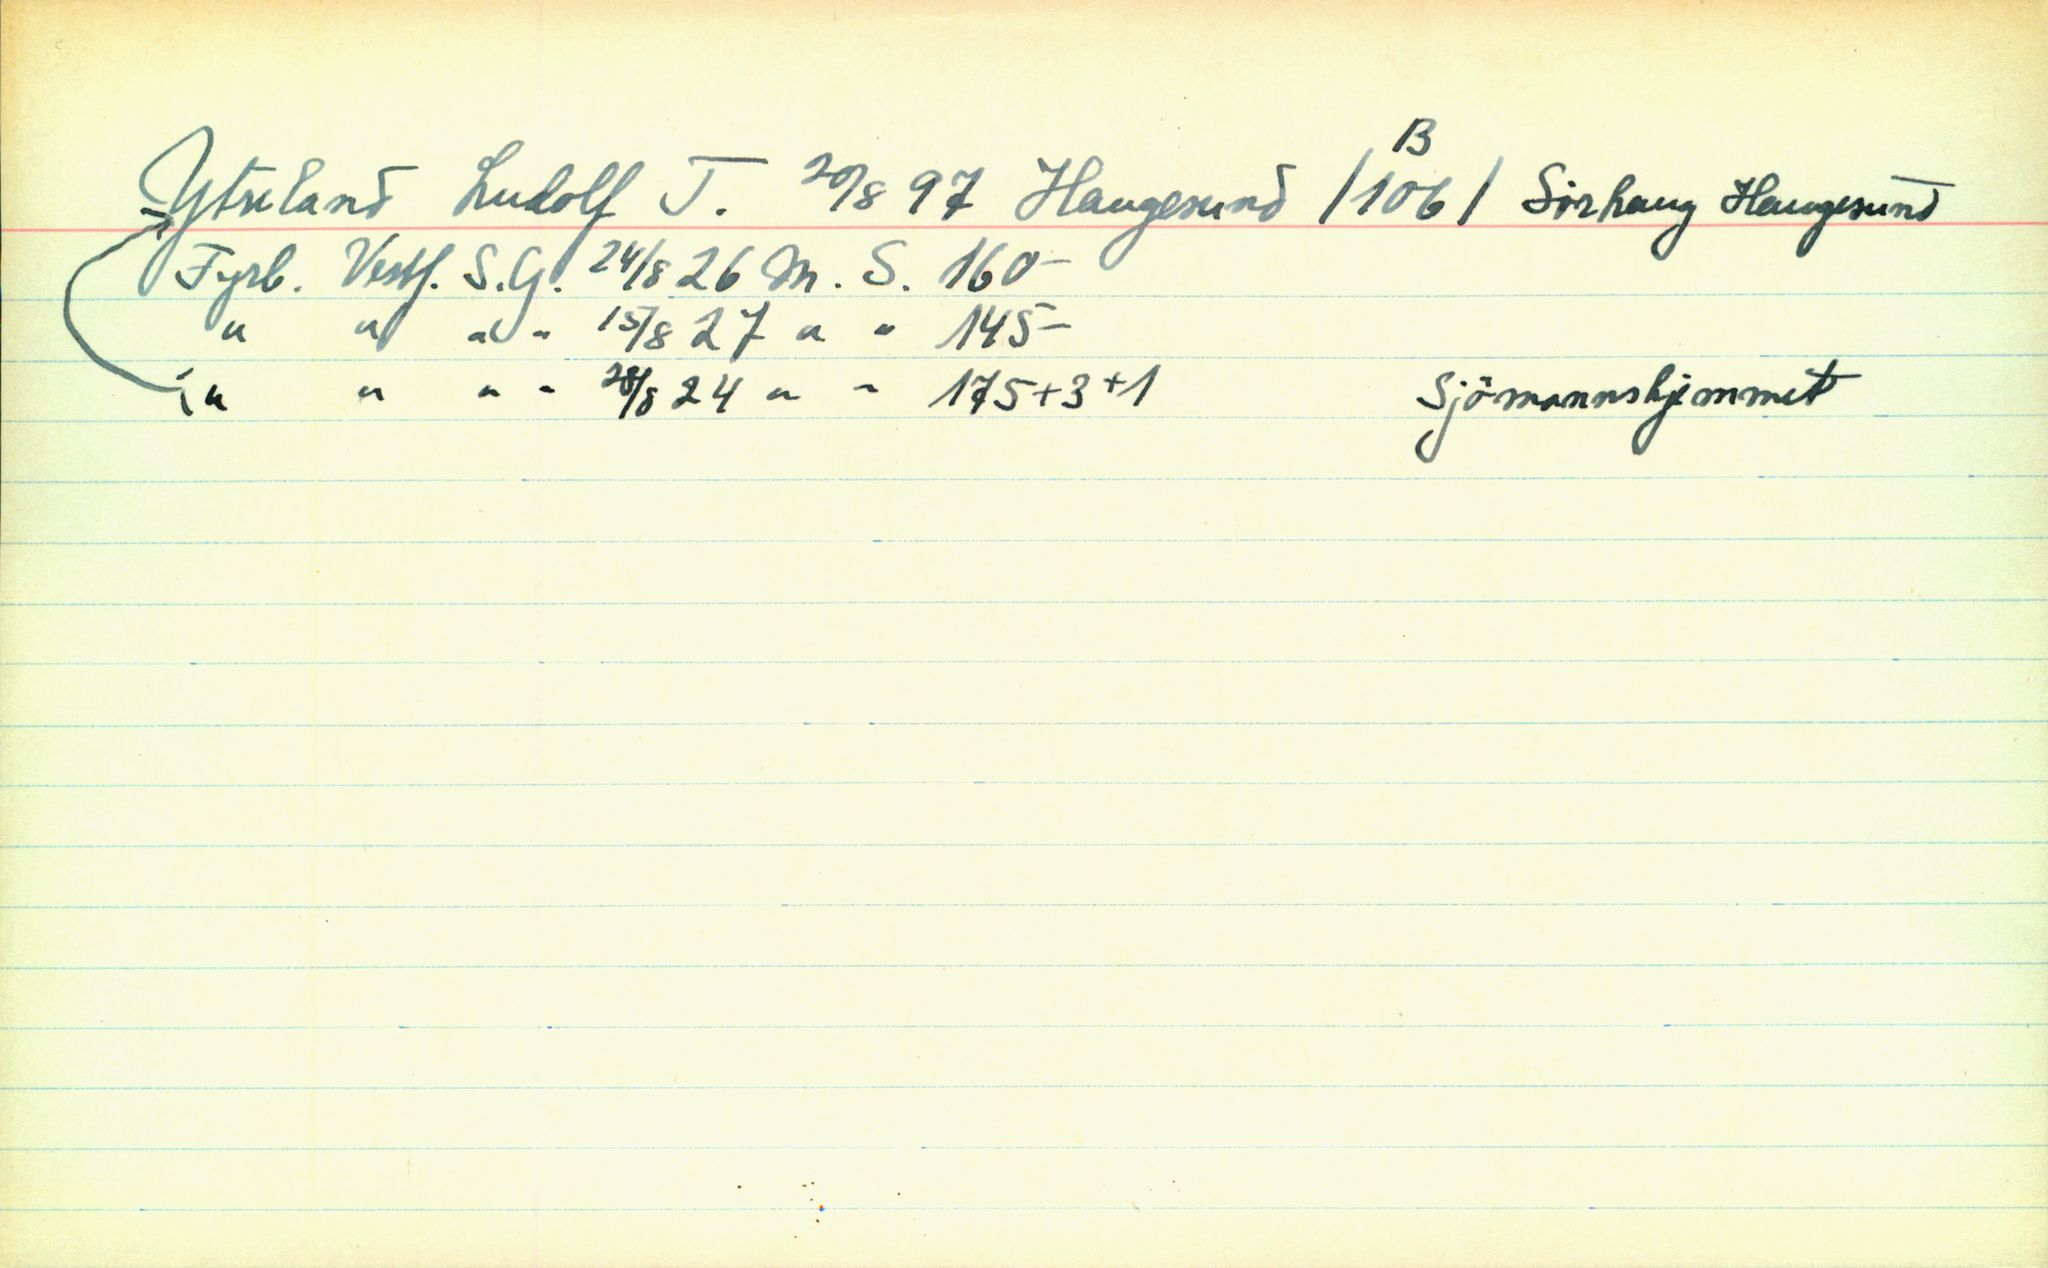 B
Ytreland Ludolf T. 20/8 97 Haugesund /106/ Sörhaug Haugesund
Fyrb. Vestf. S.G. 24/8 26 M. S. 160-
" " " " 15/8 27 " " 145-
" " " " 28/8 24 " " 175+3+1 Sjömannshjemmet